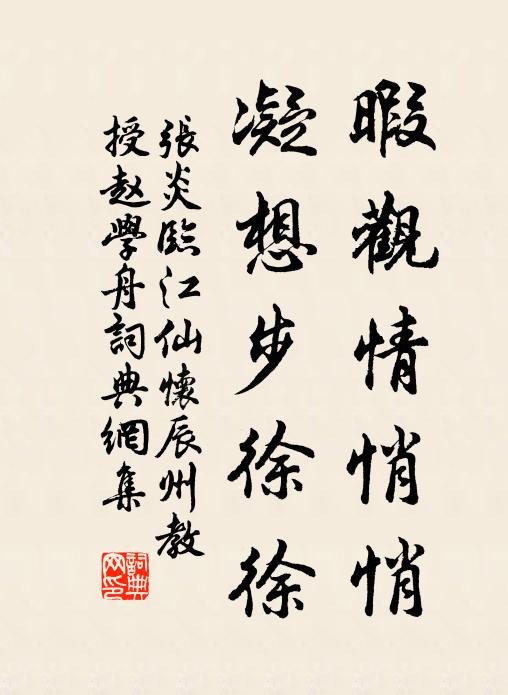 暇觀情悄悄
凝想步徐徐
張炎臨江仙懷辰州教
授赵學舟詞典網集
詞典网印